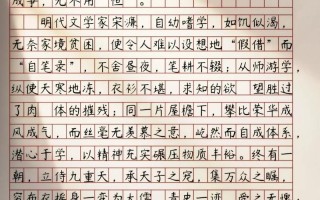 成事，无不用"恒"。
明代文学家宋濂，自幼嗜学，如饥似渴，
无奈家境贫困，使令人难以设想地"假借"而
"自笔录"，不舍昼夜，笔耕不辍；从师游学，
纵使天寒地冻，衣衫不堪，求知的欲 望胜过
了肉 体的摧残；同一片屋檐下，攀比荣华成
风成气，而丝毫无羡慕之意，屹然而自成体系，
潜心于学，以精神充实碾压物质丰裕。终有一
朝，立侍九重天，承天子之宠，集万众之瞩，